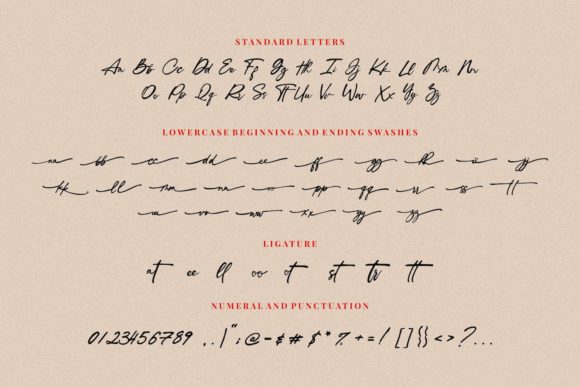 STANDARD LETTERS
Aa Bb Cc Dd Ee Ff Gg Hh Ii Jj Kk Ll Mm Nn
Oo Pp Qq Rr Ss Tt Uu Vv Ww Xx Yy Zz
LOWERCASE BEGINNING AND ENDING SWASHES
aa bb cc dd ee ff gg hh ii jj
kk ll mm nn oo pp qq rr ss tt
uu vv ww xx yy zz
LIGATURE
at ee ll oo ot st tr tt
NUMERAL AND PUNCTUATION
0123456789 , . | " ; @ - & # $ * % + = ! [ ] { } < > ? . . .